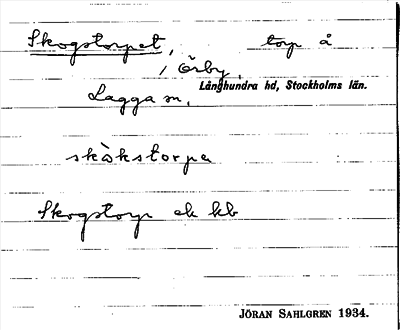 Skogstorpet, torp å
/ Örby,
Långhundra hd, Stockholms län.
Lagga sn.
skòkstorpa
Skogstorp ek kb
JÖRAN SAHLGREN 1934.